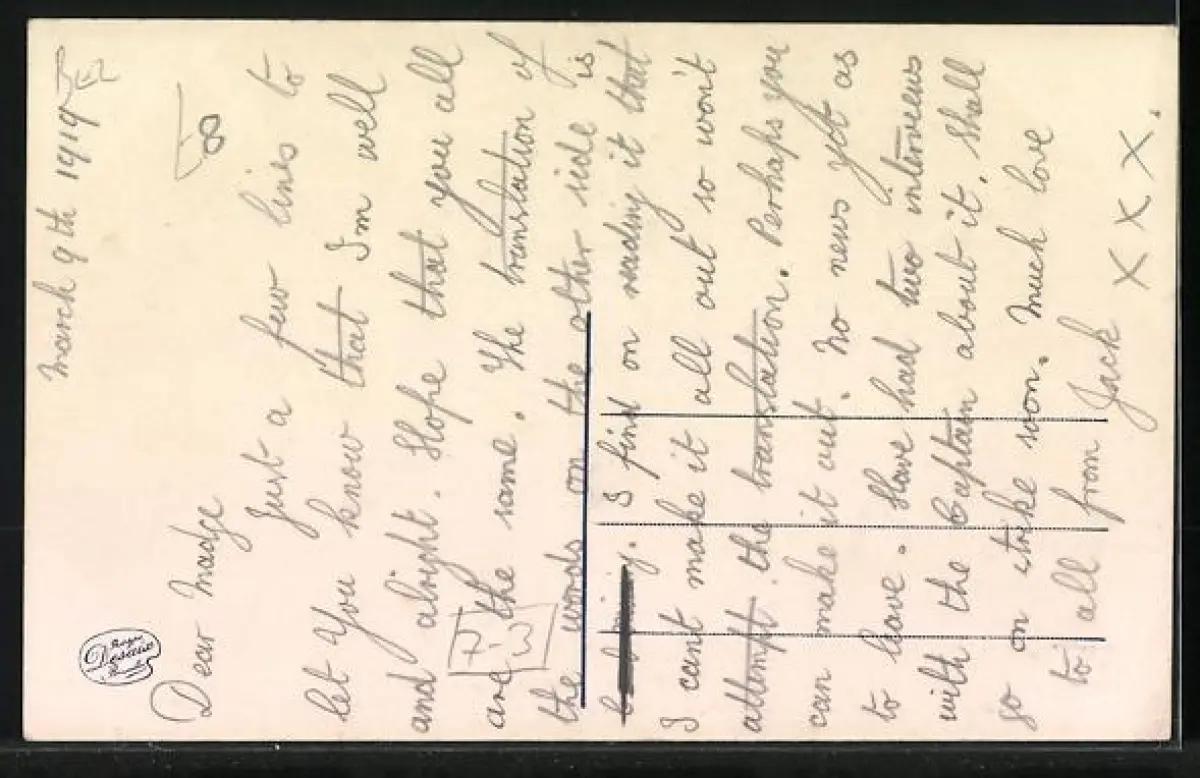 March 9th 1919
8
Dear Madge
Just a few lines to
let you know that I'm well
and alright. Hope that you all
are the same. The translation of
the words on the other side is
I find on reading it that
I cant make it all out so won't
attempt the translation. Perhaps you
can make it out. No news yet as
to leave. Have had two interviews
with the Captain about it. Shall
go on strike soon. Much love
to all from Jack
X X X.
Desaix